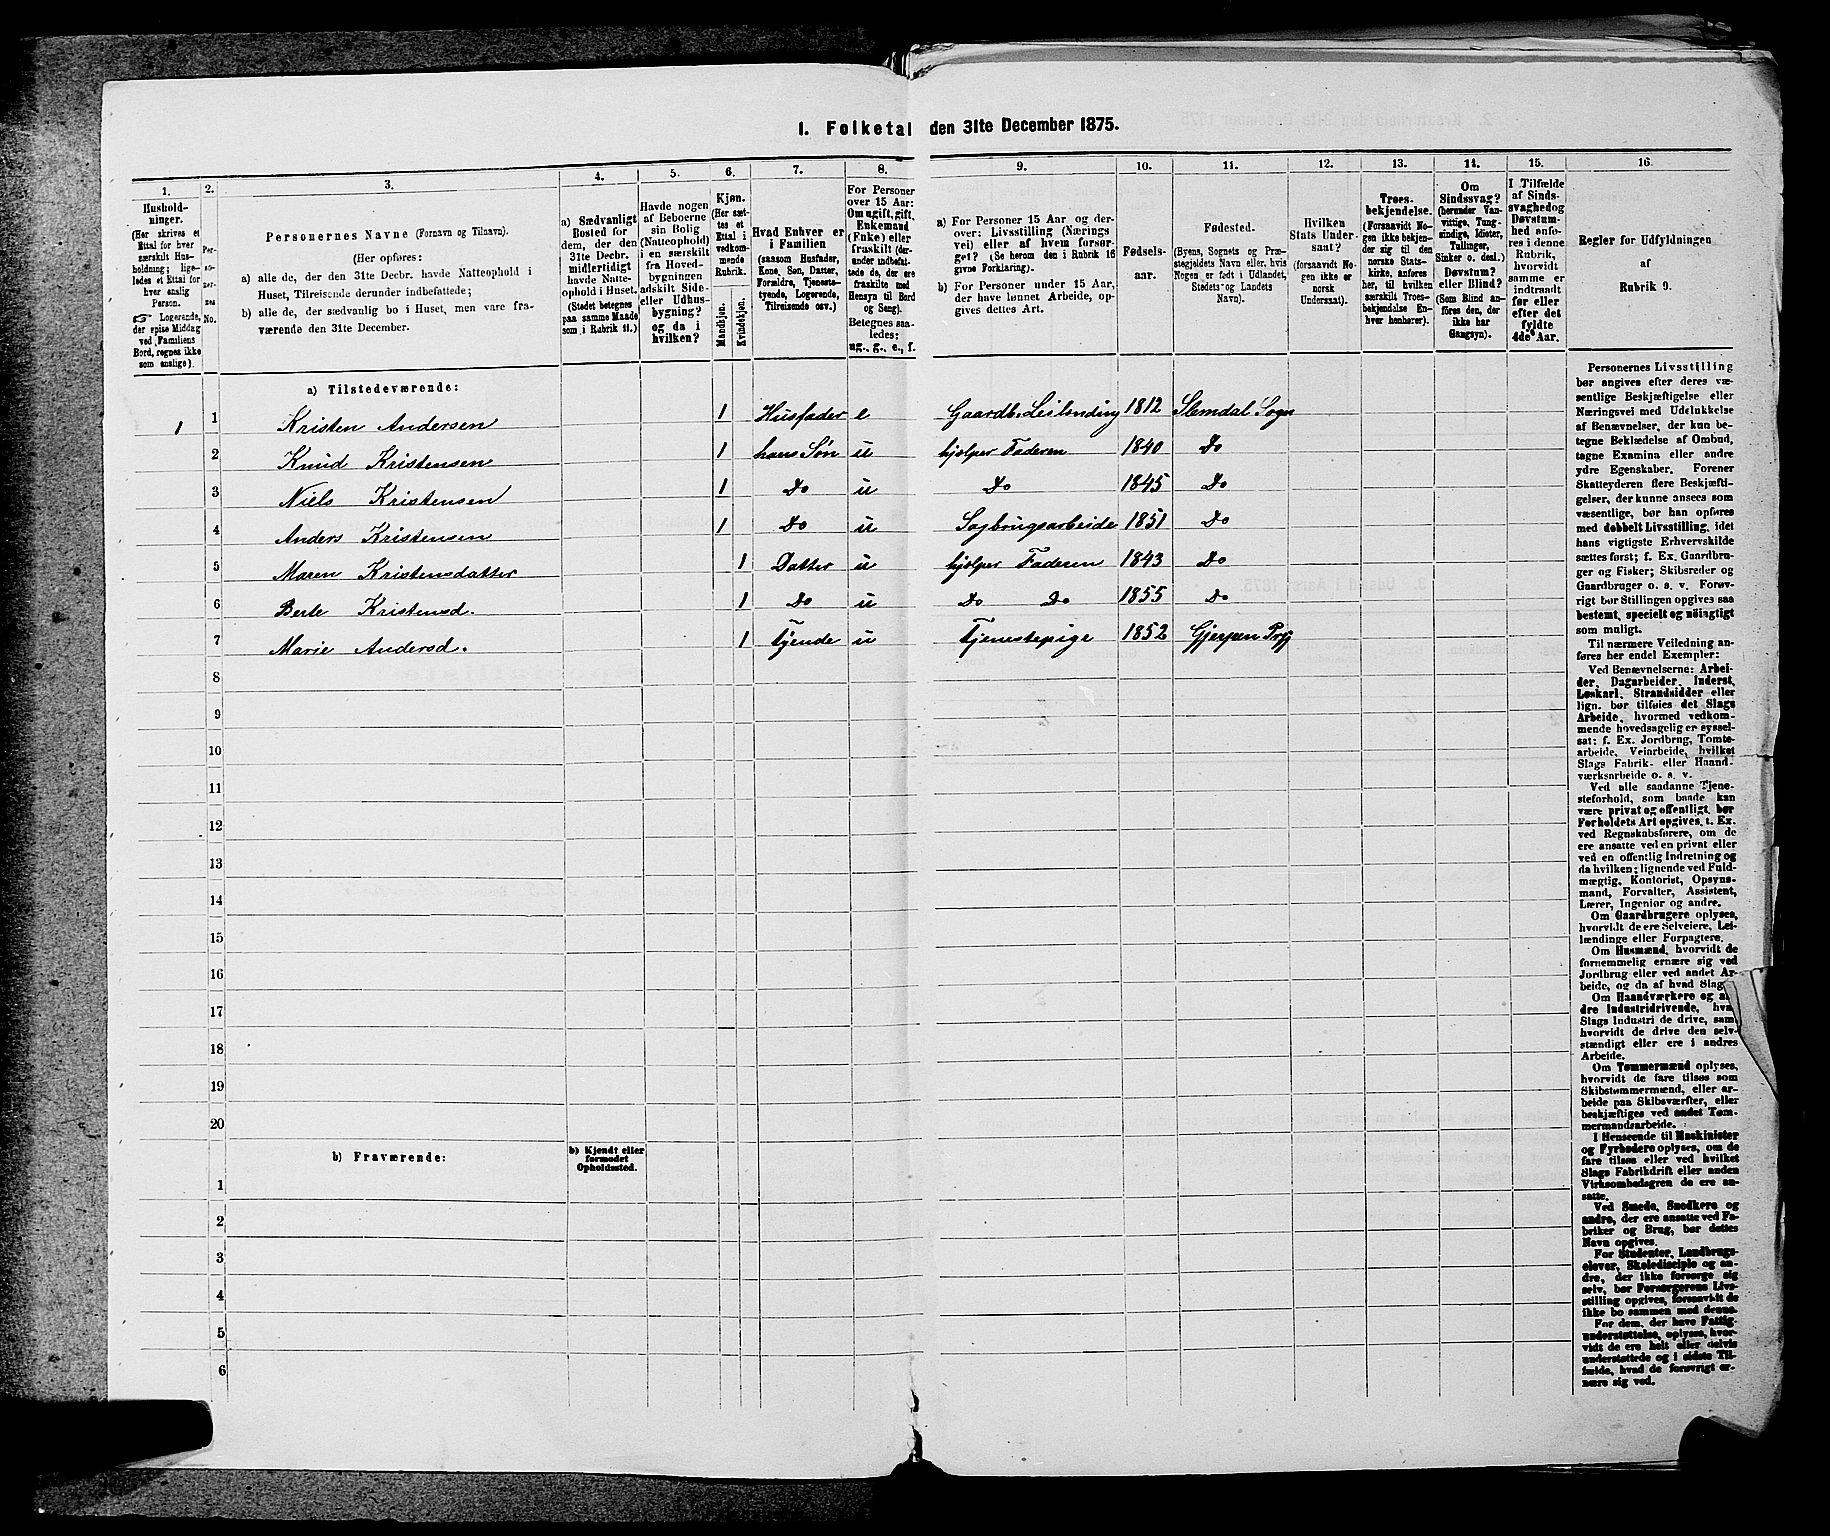 1. Folketal den 31te December 1875.
1. 2. 3. 4. 5. 6. 7. 8. 9. 10. 11. 12. 13. 14. 15. 16.
Husholdninger.
(Her skrives et
Ettal for hver
særskilt Hus-
holdning; lige-
ledes et Ettal for
hver enslig
Person.
☞ Logerende,
der spise Middag
ved Familiens
Bord, regnes ikke
som enslige).
Per-
so-
ner-
nes
No.
Personernes Navne (Fornavn og Tilnavn).
(Her opføres:
a) alle de, der den 31te Decbr. havde Natteophold i
Huset, Tilreisende derunder indbefattede;
b) alle de, der sædvanlig bo i Huset, men vare fra-
værende den 31te December.
a) Sædvanligt
Bosted for
dem, der den
31te Decbr.
midlertidigt
havde Natte-
ophold i Huset.
(Stedet betegnes
paa samme Maade
som i Rubrik 11.)
Havde nogen
af Beboerne
sin Bolig
(Natteophold)
i en særskilt
fra Hoved-
bygningen
adskilt Side-
eller Udhus-
bygning?
og da i
hvilken?
Kjøn.
(Her sæt-
tes et
Ettal i
vedkom-
mende
Rubrik.
Mandkjøn.
Kvindekjøn.
Hvad Enhver er
i Familien
(saasom Husfader,
Kone, Søn, Datter,
Forældre, Tjeneste-
tyende, Logerende,
Tilreisende osv.)
For Personer
over 15 Aar:
Om ugift, gift,
Enkemand
(Enke) eller
fraskilt (der-
under indbefat-
tede de, der ere
fraskilte med
Hensyn til Bord
og Seng).
Betegnes saa-
ledes:
ug., g., e., f.
a) For Personer 15 Aar og der-
over: Livsstilling (Nærings
vei) eller af hvem forsør-
get? (Se herom den i Rubrik 16
givne Forklaring).
b) For Personer under 15 Aar,
der have lønnet Arbeide, op-
gives dettes Art.
Fødsels-
aar.
Fødested.
(Byens, Sognets og Præ-
stegjeldets Navn eller, hvis
Nogen er født i Udlandet,
Stedets og Landets
Navn).
Hvilken
Stats Under-
saat?
(forsaavidt No-
gen ikke er
norsk
Undersaat).
Troes-
bekjendelse.
(Forsaavidt No-
gen ikke bekjen-
der sig til den
norske Stats-
kirke, anføres
her, til hvilken
særskilt Troes-
bekjendelse En-
hver henhører).
Om
Sindssvag?
(herunder Van-
vittige, Tung-
sindige, Idioter,
Tullinger,
Sinker o. desl.)
Døvstum?
eller Blind?
(Som Blind an-
føres den, der
ikke har
Gangsyn).
I Tilfælde
af Sinds-
svaghed og
Døvstum-
hed anfø-
res i denne
Rubrik,
hvorvidt
samme er
indtraadt
før eller
efter det
fyldte
4de Aar.
Regler for Udfyldningen
af
Rubrik 9.
a) Tilstedeværende:
1 1 Kristen Andersen 1 Husfader e Gaardb. Leilending 1812 Slemdal Sogn
2 Knud Kristensen 1 hans Søn u hjælper Faderen 1840 Do
3 Niels Kristensen 1 Do u Do 1845 Do
4 Anders Kristensen 1 Do u Sagbrugsarbeide 1851 Do
5 Maren Kristensdatter 1 Datter u hjælper Faderen 1843 Do
6 Berte Kristensd. 1 Do u Do Do 1855 Do
7 Marie Andersd. 1 Tjende u Tjenestepige 1852 Gjerpen Prgj
8
9
10
11
12
13
14
15
16
17
18
19
20
b) Fraværende:
b) Kjendt eller
formodet
Opholdssted.
1
2
3
4
5
6
Personernes Livsstilling
bør angives efter deres væ-
sentlige Beskjæftigelse eller
Næringsvei med Udelukkelse
af Benævnelser, der kun be-
tegne Beklædelse af Ombud,
tagne Examina eller andre
ydre Egenskaber. Forener
Skatteyderen flere Beskjæfti-
gelser, der kunne ansees som
væsentlige, bør han opføres
med dobbelt Livsstilling, idet
hans vigtigste Erhvervskilde
sættes først; f. Ex. Gaardbru-
ger og Fisker; Skibsreder og
Gaardbruger o. s. v. Forøv-
rigt bør Stillingen opgives saa
bestemt, specielt og nøiagtigt
som muligt.
Til nærmere Veiledning an-
føres her endel Exempler:
Ved Benævnelserne: Arbei-
der, Dagarbeider, Inderst,
Løskarl, Strandsidder eller
lign. bør tilføies det Slags
Arbeide, hvormed vedkom-
mende hovedsagelig er syssel-
sat: f. Ex. Jordbrug, Tomte-
arbeide, Veiarbeide, hvilket
Slags Fabrik- eller Haand-
værksarbeide o. s. v.
Ved alle saadanne Tjene-
steforhold, som baade kan
være privat og offentligt, bør
Forholdets Art opgives, t. Ex.
ved Regnskabsførere, om de
ere ansatte ved en privat eller
ved en offentlig Indretning og
da hvilken; lignende ved Fuld-
mægtig, Kontorist, Opsyns-
mand, Forvalter, Assistent,
Lærer, Ingeniør og andre.
Om Gaardbrugere oplyses,
hvorvidt de ere Selveiere, Lei-
lændinge eller Forpagtere.
Om Husmænd, hvorvidt de
fornemmelig ernære sig ved
Jordbrug eller ved andet Ar-
beide, og da af hvad Slags
Om Haandværkere og an-
dre Industridrivende, hva
Slags Industri de drive, sam
hvorvidt de drive den selv-
stændigt eller ere i andres
Arbeide.
Om Tømmermænd oplyses,
hvorvidt de fare tilsøs som
Skibstømmermænd, eller ar-
beide paa Skibsværfter, eller
beskjæftiges ved andet Tøm-
mermandsarbeide.
I Henseende til Maskinister
og Fyrbødere oplyses, om de
fare tilsøs eller ved hvilket
Slags Fabrikdrift eller anden
Virksomhedsgren de ere an-
satte.
Ved Smede, Snedkere og
andre, der ere ansatte ved Fa-
briker og Brug, bør dettes
Navn opgives.
For Studenter, Landbrugs-
elever, Skoledisciple og an-
dre, der ikke forsørge sig
selv, bør Forsørgerens Livs-
stilling opgives, forsaavidt de
ikke bo sammen med denne.
For dem, der have Fattig-
understøttelse, oplyses, hvor-
vidt de ere helt eller delvis
understøttede og i sidste Til-
fælde, hvad de forøvrigt er-
nære sig ved.